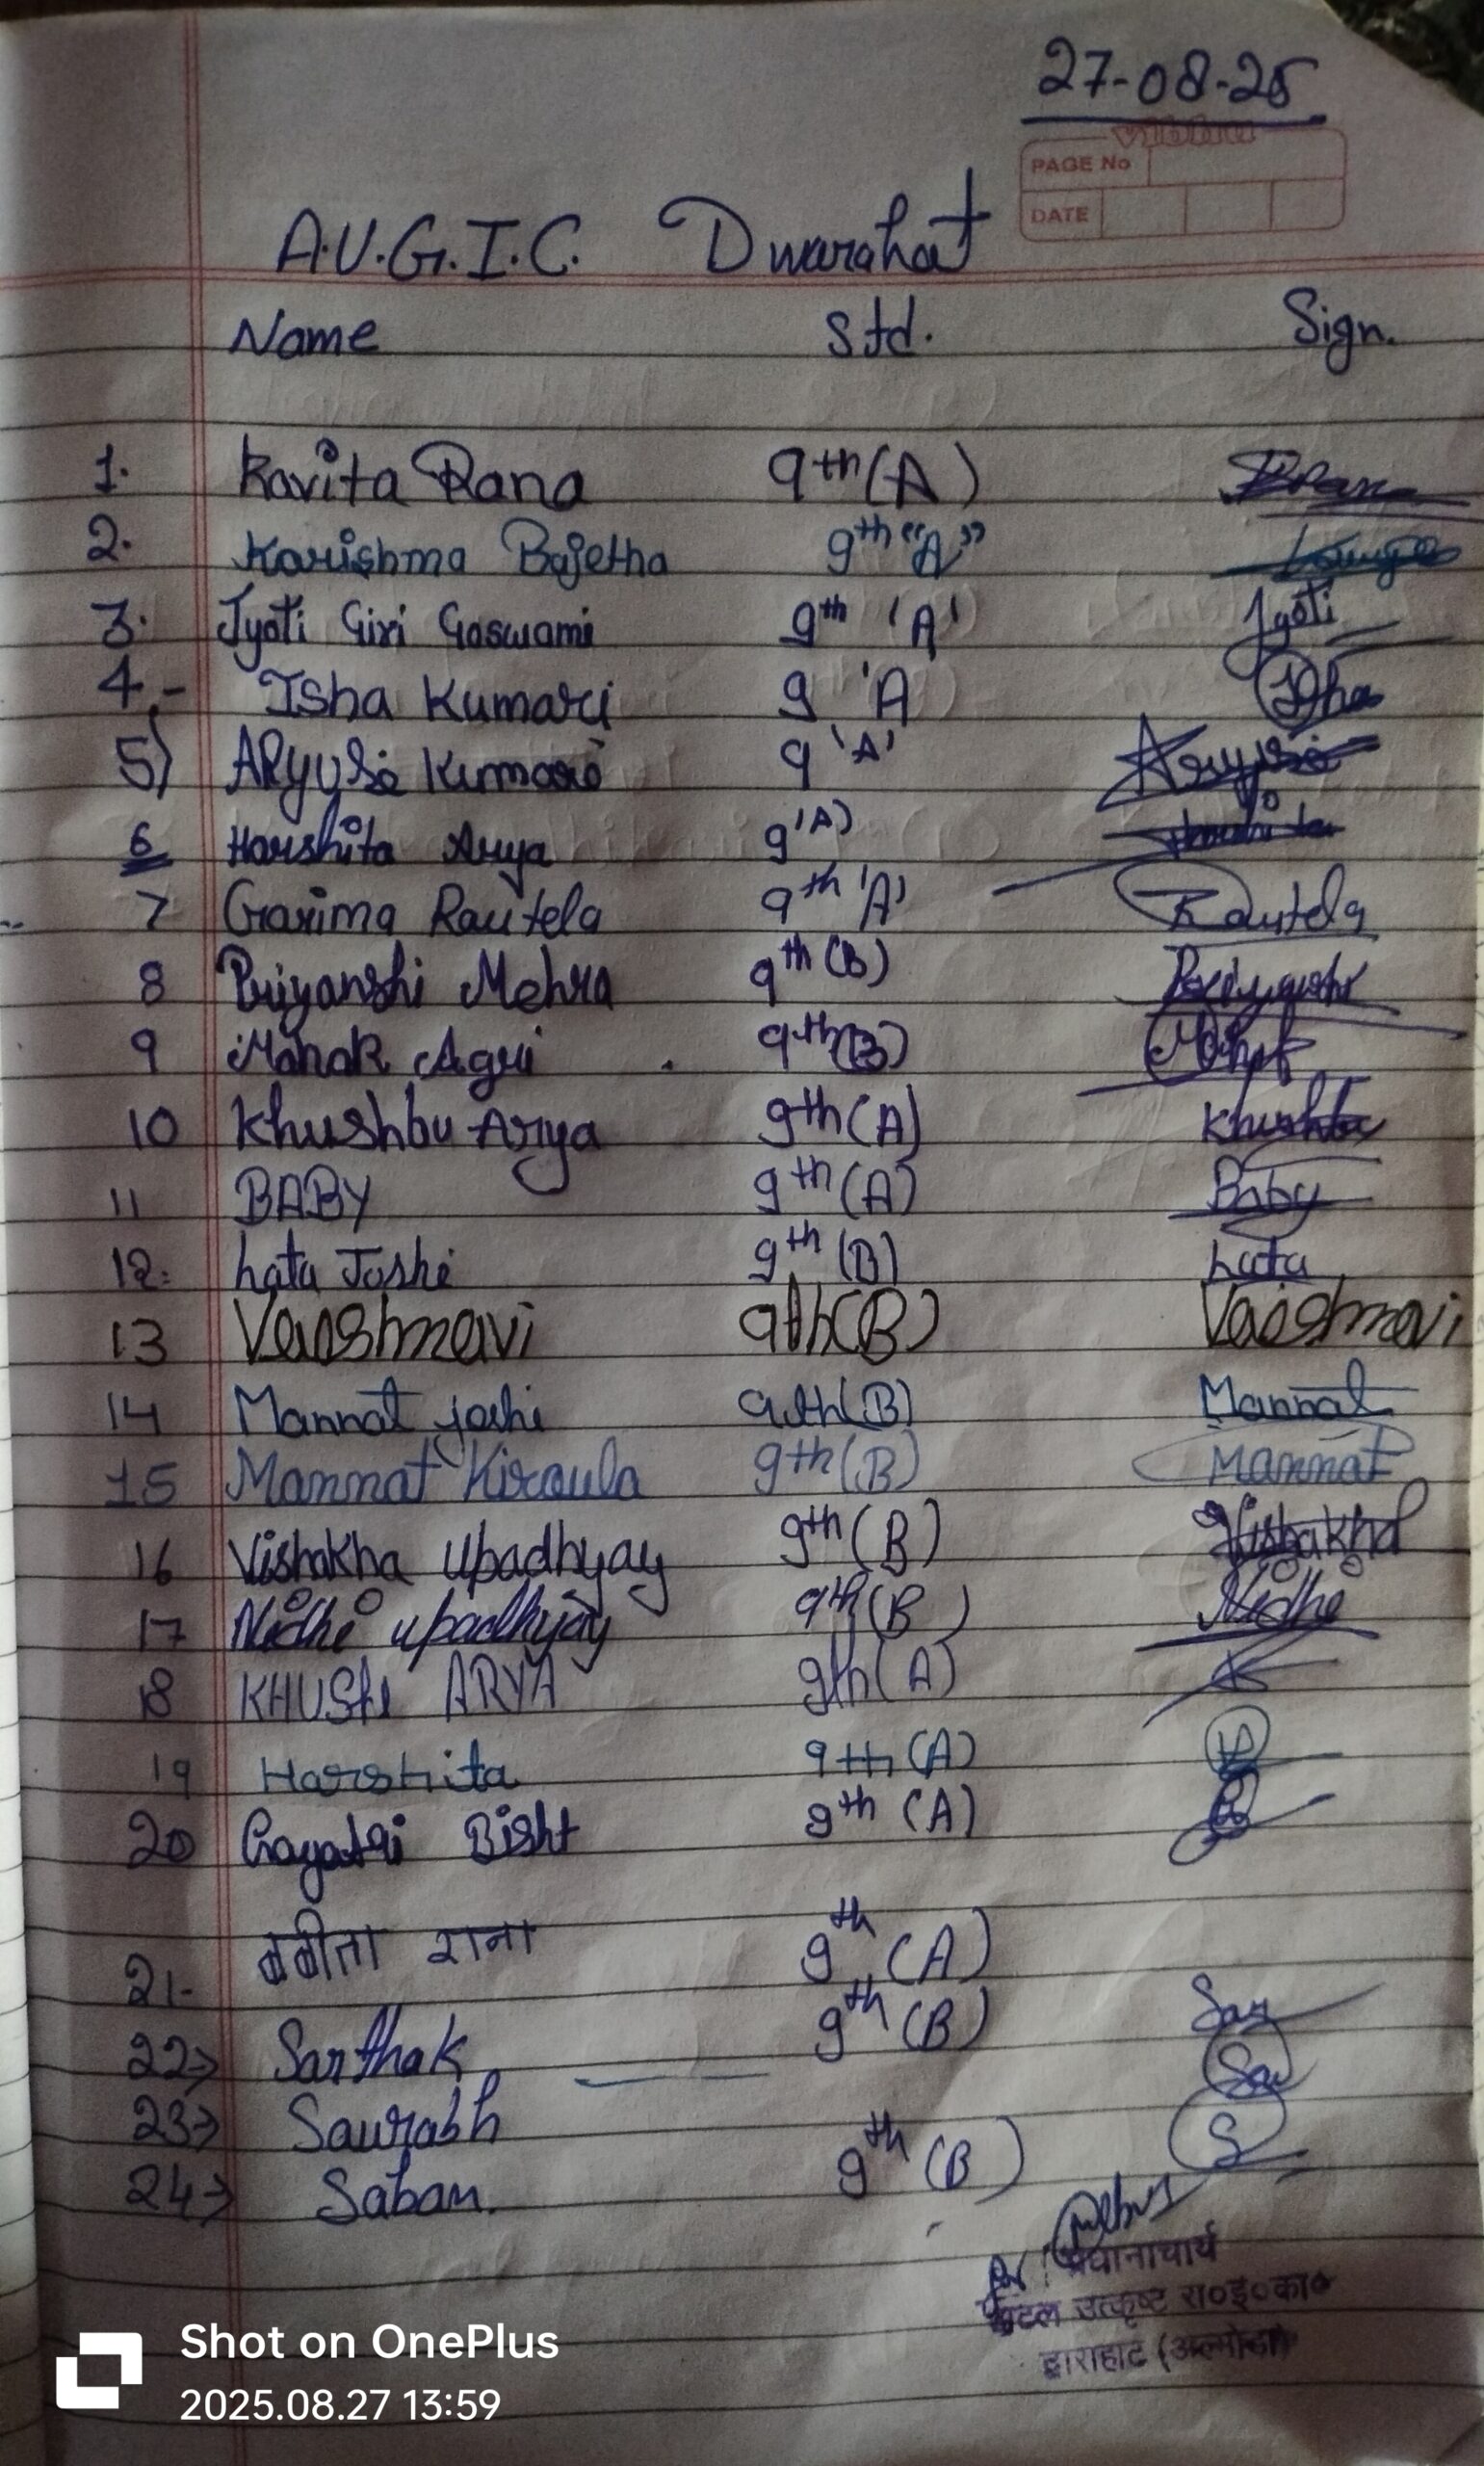 27-08-25
vibhu
PAGE No
DATE
A.V.G.I.C. Dwarahat
Name Std. Sign.
1. Kavita Rana 9th (A)
2. Karishma Bajetha 9th "A"
3. Jyoti Giri Goswami 9th 'A' Jyoti
4.- Isha Kumari 9 'A Isha
5) ARyuSi Kumari 9 'A' Aryusi
6 Harshita Arya 9 'A)
7 Garima Rautela 9th 'A' Rautela
8 Priyanshi Mehra 9th (B) Priyanshi
9 Mahak Agri 9th (B) Mahak
10 Khushbu Arya 9th (A) Khushbu
11 BABY 9th (A) Baby
12. Lata Joshi 9th (B) Lata
13 Vaishnavi 9th (B) Vaishnavi
14 Mannat Joshi 9th (B) Mannat
15 Mannat Kiraula 9th (B) Mannat
16 Vishakha Upadhyay 9th (B) Vishakha
17 Nidhi upadhyay 9th (B) Nidhi
18 KHUSHi ARYA 9th (A) K
19 Harshita 9th (A) H
20 Gayatri Bisht 9th (A)
21- बबीता राना 9th (A)
22→ Sarthak 9th (B) Sar
23→ Saurabh Sau
24→ Saban. 9th (B) S
प्रधानाचार्य
अटल उत्कृष्ट रा०इ०का०
द्वाराहाट (अल्मोड़ा)
Shot on OnePlus
2025.08.27 13:59